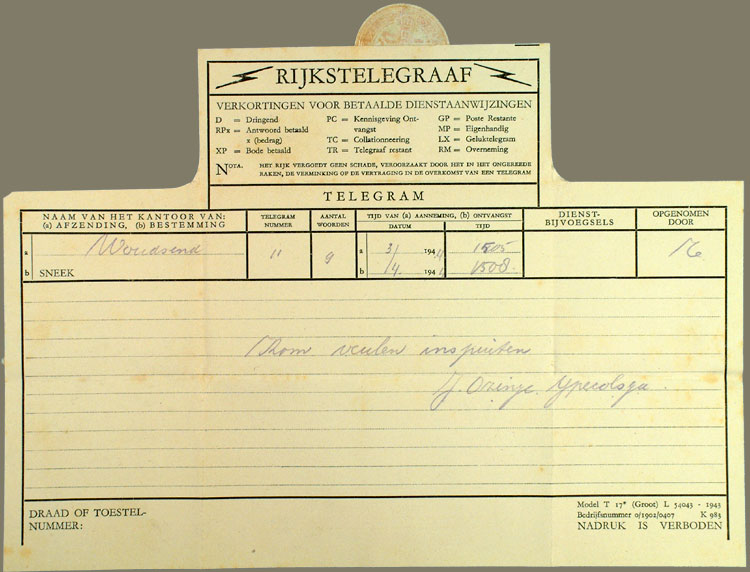 RIJKSTELEGRAAF
VERKORTINGEN VOOR BETAALDE DIENSTAANWIJZINGEN
D = Dringend
RPx = Antwoord betaald
x (bedrag)
XP = Bode betaald
PC = Kennisgeving Ont-
vangst
TC = Collationneering
TR = Telegraaf restant
GP = Poste Restante
MP = Eigenhandig
LX = Geluktelegram
RM = Overneming
NOTA. HET RIJK VERGOEDT GEEN SCHADE, VEROORZAAKT DOOR HET IN HET ONGEREEDE
RAKEN, DE VERMINKING OF DE VERTRAGING IN DE OVERKOMST VAN EEN TELEGRAM
TELEGRAM
NAAM VAN HET KANTOOR VAN:
(a) AFZENDING, (b) BESTEMMING
TELEGRAM
NUMMER
AANTAL
WOORDEN
TIJD VAN (a) AANNEMING, (b) ONTVANGST
DATUM
TIJD
DIENST-
BIJVOEGSELS
OPGENOMEN
DOOR
a Woudsend 11 9 a 3/ 194 1505
b SNEEK b /4 194 1508
Kom veulen inspuiten
DRAAD OF TOESTEL-
NUMMER:
Model T 17* (Groot) L 54043 - 1943
Bedrijfsnummer 0/1902/0407 K 983
NADRUK IS VERBODEN